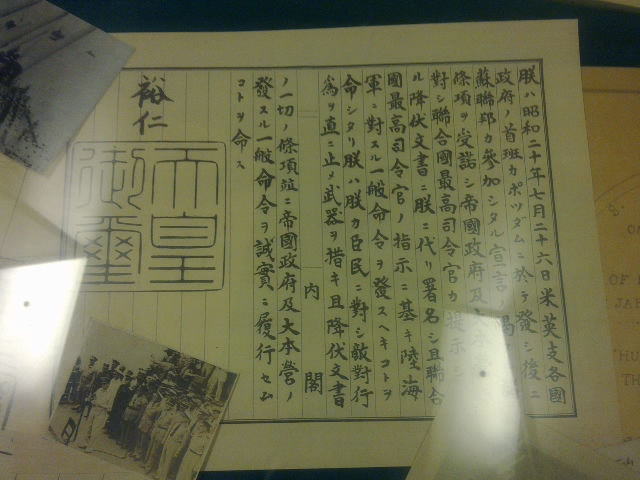 朕ハ昭和二十年七月二十六日米英支各國
政府ノ首班カポツダムニ於テ發シ後ニ
蘇聯邦カ參加シタル宣言ノ掲
條項ヲ受諾シ帝國政府及
對シ聯合國最高司令官カ提示
ル降伏文書ニ朕ニ代リ署名シ且聯合
國最高司令官ノ指示ニ基キ陸海
軍ニ對スル一般命令ヲ發スヘキコトヲ
命シタリ朕ハ朕カ臣民ニ對シ敵對行
爲ヲ直ニ止メ武器ヲ措キ且降伏文書
ノ一切ノ條項竝ニ帝國政府及大本營ノ
發スル一般命令ヲ誠實ニ履行セム
コトヲ命ス
裕仁
天皇
御璽
內閣